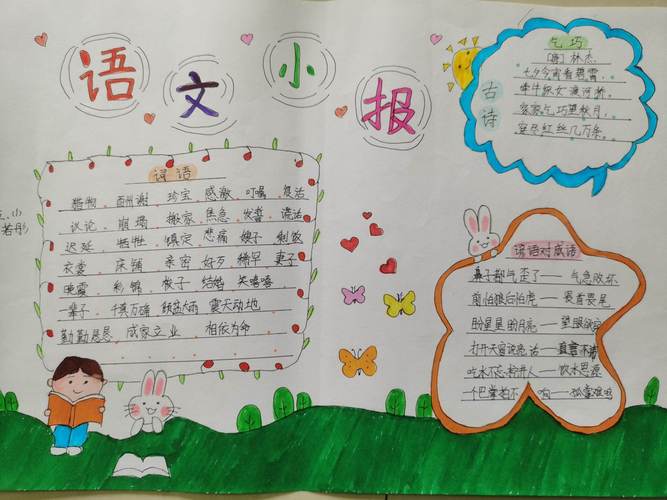 语文小报
气巧
[唐]林杰
七夕今宵看碧霄,
牵牛织女渡河桥。
家家气巧望秋月,
穿尽红丝几万条。
古诗
词语
猎物 酬谢 珍宝 感激 叮嘱 复活
议论 崩塌 搬家 焦急 发誓 谎话
迟延 牺牲 镇定 悲痛 嫂子 剩饭
衣裳 床铺 亲密 好歹 稀罕 妻子
晚霞 彩锦 梭子 结婚 笑嘻嘻
一辈子 千真万确 倾盆大雨 震天动地
勤勤恳恳 成家立业 相依为命
谚语对成语
鼻子都气歪了——气急败坏
前怕狼后怕虎——畏首畏尾
盼星星盼月亮——望眼欲穿
打开天窗说亮话——直言不讳
吃水不忘挖井人——饮水思源
一个巴掌拍不响——孤掌难鸣